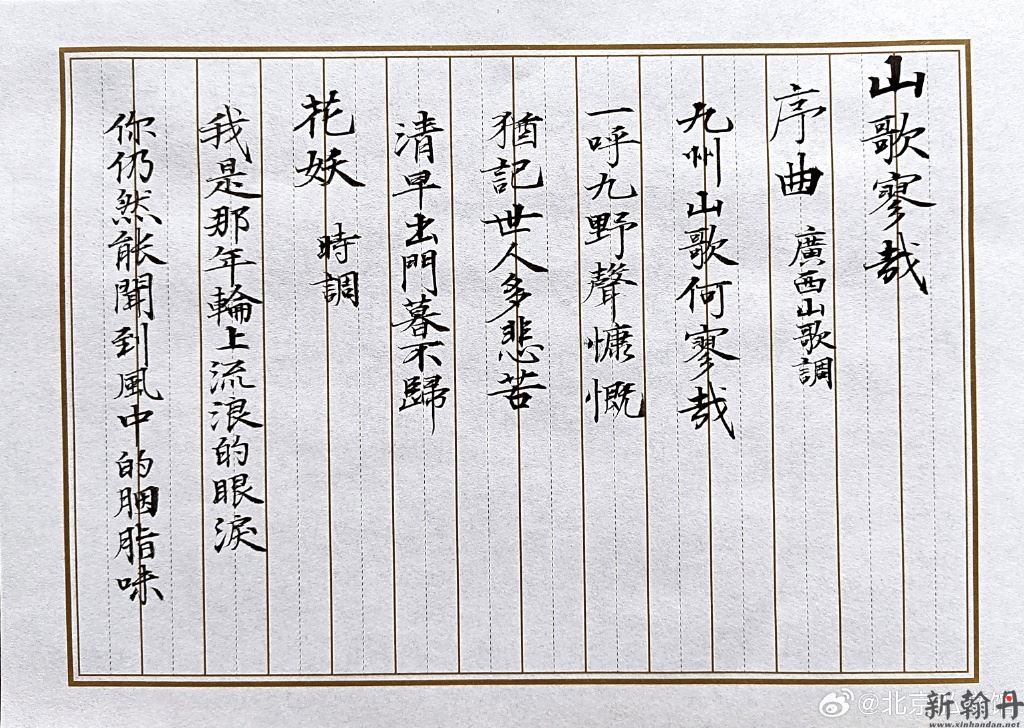 山歌寥哉
序曲 廣西山歌調
九州山歌何寥哉
一呼九野聲慷慨
猶記世人多悲苦
清早出門暮不歸
花妖 時調
我是那年輪上流浪的眼淚
你仍然能聞到風中的胭脂味
@北京
新翰丹
www.xinhandan.net